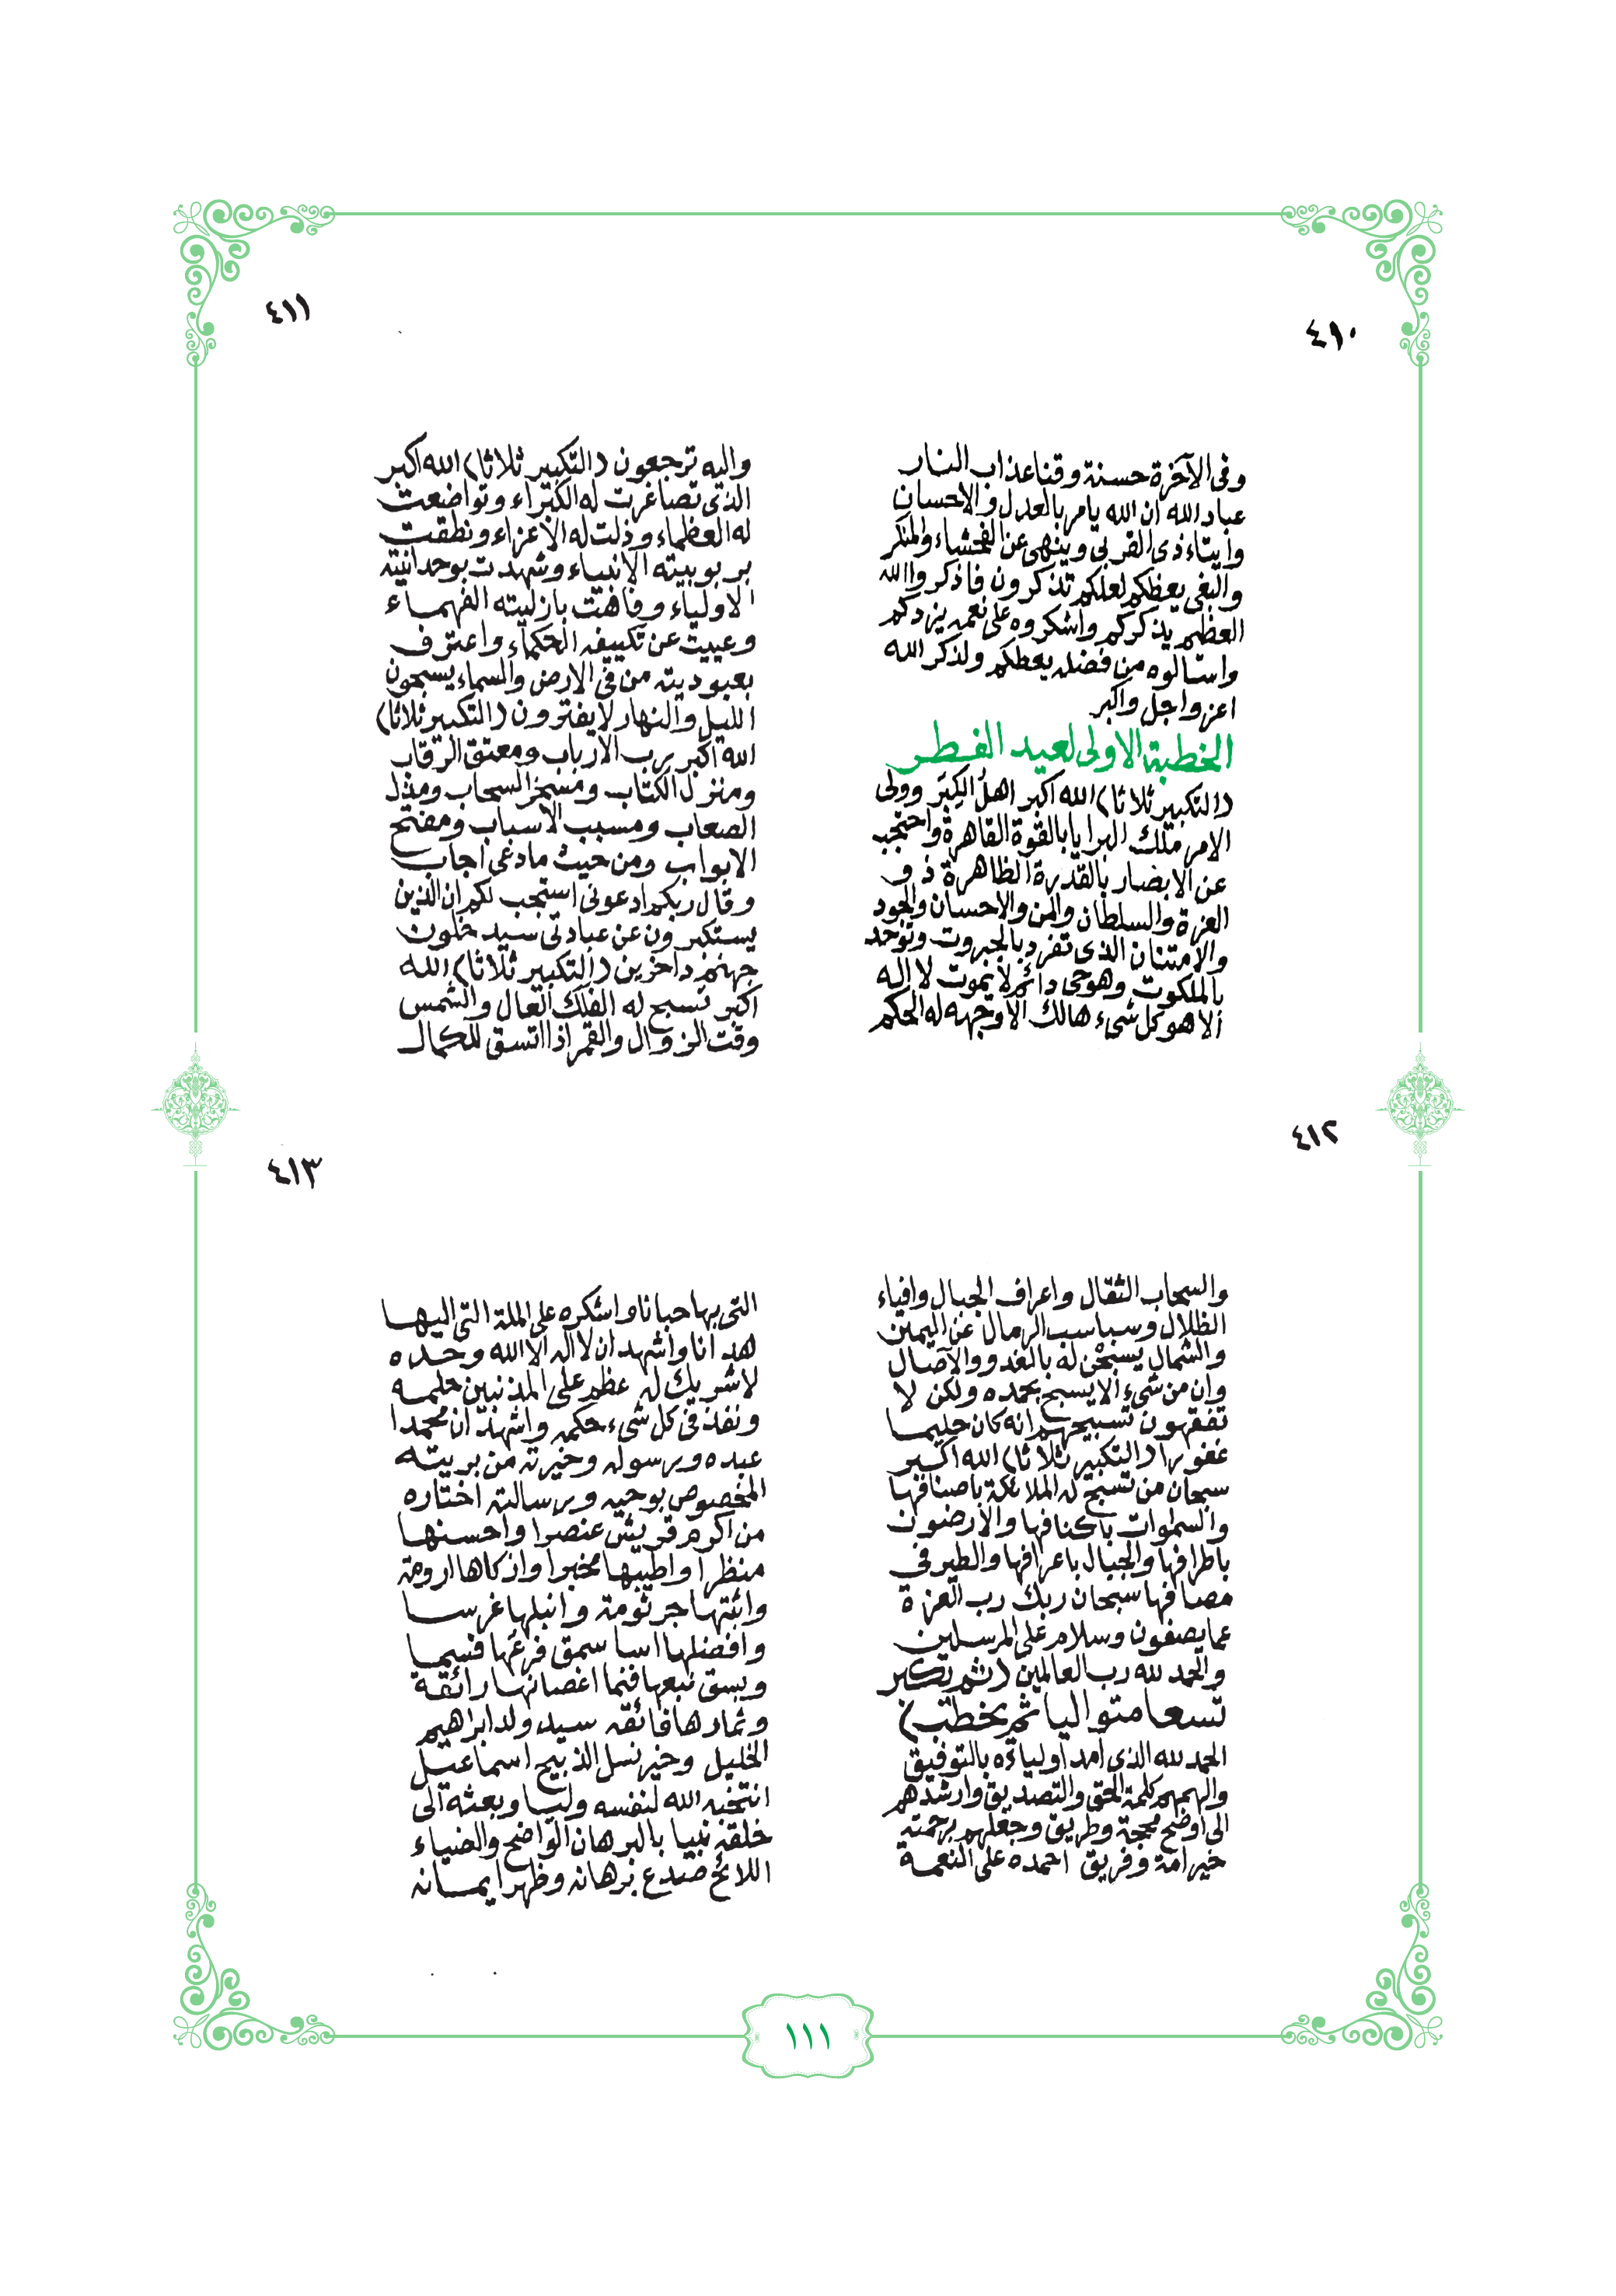 ٤١٠
وفى الآخرة حسنة وقنا عذاب النار
عباد الله ان الله يامر بالعدل والاحسان
وايتاء ذى القربى وينهى عن الفحشاء والمنكر
والبغى يعظكم لعلكم تذكرون فاذكروا الله
العظيم يذكركم واشكروه على نعمه يزدكم
واسالوه من فضله يعطكم ولذكر الله
اعز واجل واكبر
الخطبة الاولى لعيد الفطر
(التكبير ثلاثا) الله اكبر اهل الكبر وولى
الامر ملك البرايا بالقوة القاهرة واحتجب
عن الابصار بالقدرة الظاهرة ذو
العزة والسلطان والمن والاحسان والجود
والامتنان الذى تفرد بالجبروت وتوحد
بالملكوت وهو حى دائم لا يموت لا اله
الا هو كل شىء هالك الا وجهه له الحكم
٤١١
واليه ترجعون (التكبير ثلاثا) الله اكبر
الذى تصاغرت له الكبراء وتواضعت
له العظماء وذلت له الاعزاء ونطقت
بربوبيته الانبياء وشهدت بوحدانيته
الاولياء وفاهت بازليته الفهماء
وعييت عن تكييفه الحكماء واعترف
بعبوديته من فى الارض والسماء يسبحون
الليل والنهار لا يفترون (التكبير ثلاثا)
الله اكبر رب الارباب ومعتق الرقاب
ومنزل الكتاب ومسخر السحاب ومذل
الصعاب ومسبب الاسباب ومفتح
الابواب ومن حيث ما دعى اجاب
وقال ربكم ادعونى استجب لكم ان الذين
يستكبرون عن عبادتى سيدخلون
جهنم داخرين (التكبير ثلاثا) الله
اكبر تسبح له الفلك العال والشمس
وقت الزوال والقمر اذا اتسق للكمال
٤١٢
والسحاب الثقال واعراف الجبال وافياء
الظلال وسباسب الرمال عن اليمين
والشمال يسبحن له بالغدو والآصال
وان من شىء الا يسبح بحمده ولكن لا
تفقهون تسبيحهم انه كان حليما
غفورا (التكبير ثلاثا) الله اكبر
سبحان من تسبح له الملائكة باصنافها
والسموات باكنافها والارضون
باطرافها والجبال باعرافها والطير فى
مصافها سبحان ربك رب العزة
عما يصفون وسلام على المرسلين
والحمد لله رب العالمين (ثم تكبر
تسعا متواليا ثم يخطب)
الحمد لله الذى امد اولياءه بالتوفيق
والهمهم كلمة الحق والتصديق وارشدهم
الى اوضح محجة وطريق وجعلهم برحمته
خير امة وفريق احمده على النعمة
٤١٣
التى بها حبانا واشكره على الملة التى اليها
هدانا واشهد ان لا اله الا الله وحده
لا شريك له عظم على المذنبين حلمه
ونفذ فى كل شىء حكمه واشهد ان محمدا
عبده ورسوله وخيرته من بريته
المخصوص بوحيه ورسالته اختاره
من اكرم قريش عنصرا واحسنها
منظرا واطيبها مخبرا وازكاها ارومة
واثبتها جرثومة وانبلها غرسا
وافضلها اسا سمق فرعها فسما
وبسق نبعها فنما اغصانها رائقة
وثمارها فائقه سيد ولد ابراهيم
الخليل وخير نسل الذبيح اسماعيل
انتخبه الله لنفسه وليا وبعثه الى
خلقه نبيا بالبرهان الواضح والضياء
اللائح صدع برهانه وظهر ايمانه
١١١